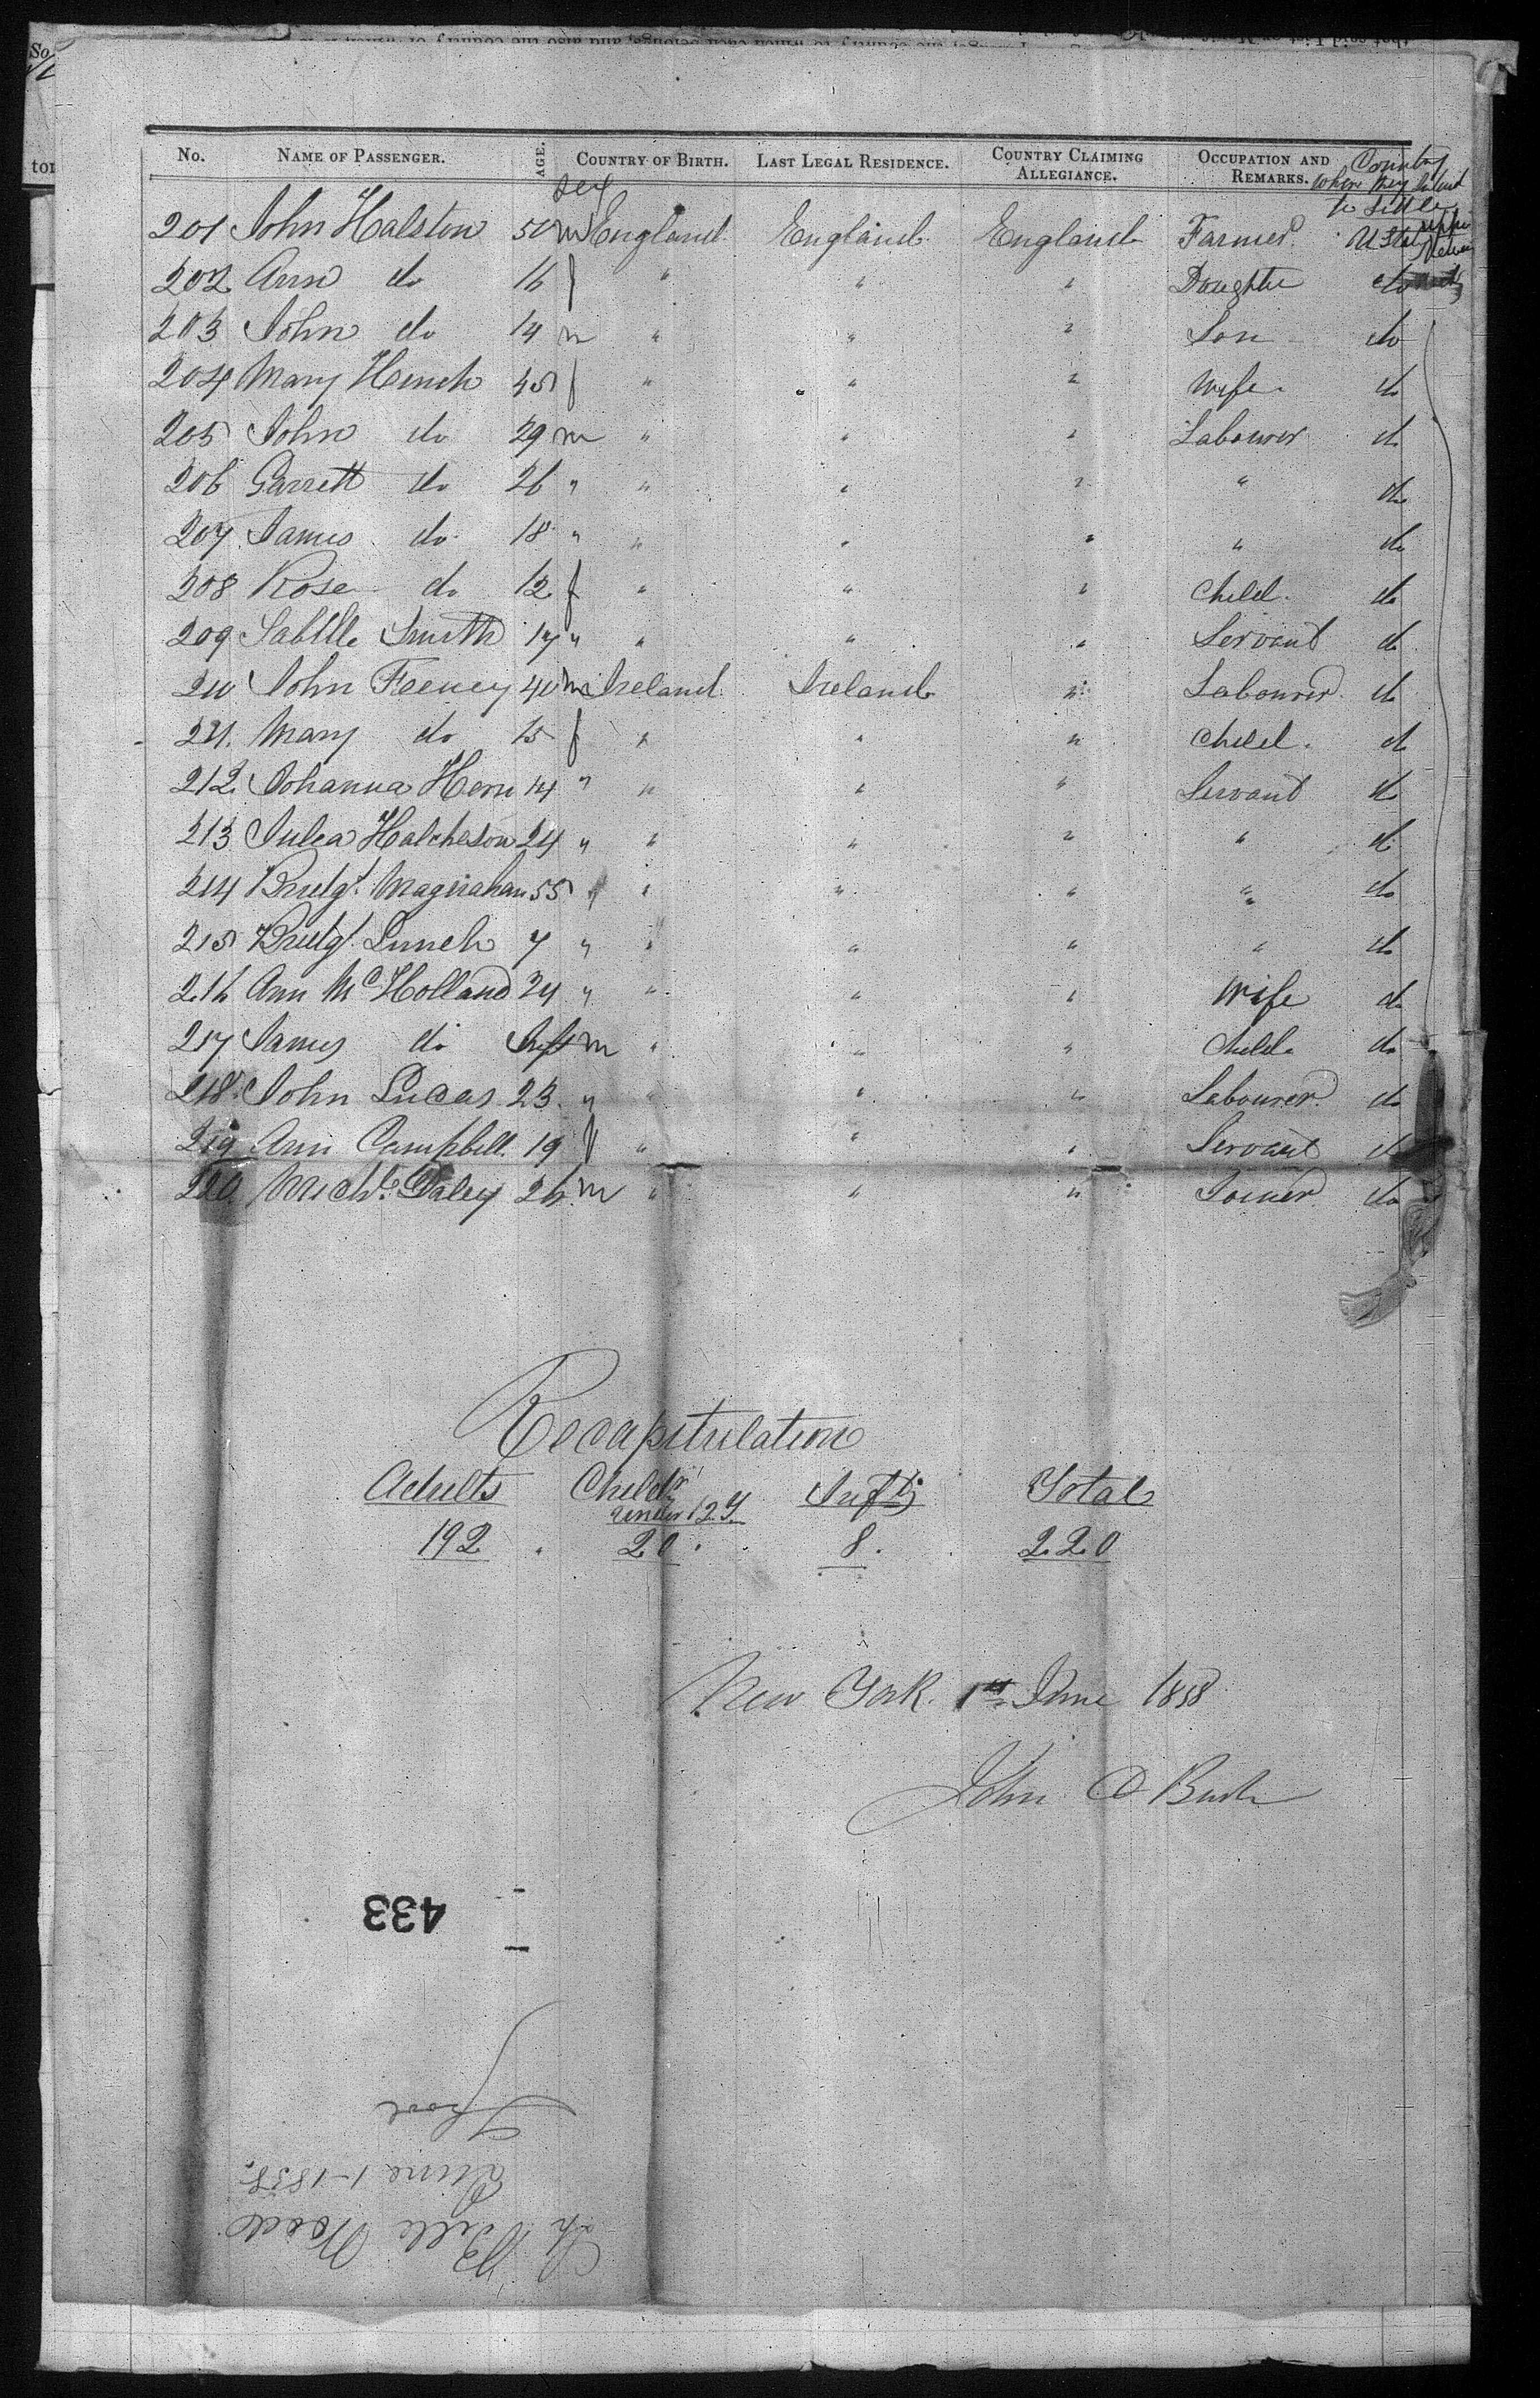 No. NAME OF PASSENGER. AGE. sex COUNTRY OF BIRTH. LAST LEGAL RESIDENCE. COUNTRY CLAIMING ALLEGIANCE. OCCUPATION AND REMARKS. Country where they intend to settle
201 John Halston 50 m England England England Farmer. U States
202 Ann do 16 f " " " Daughter do
203 John do 14 m " " " Son do
204 Mary Hench 45 f " " " Wife. do
205 John do 29 m " " " Labourer do
206 Garrett do 26 " " " " " do
207 James do 18 " " " " " do
208 Rose do 12 f " " " Child. do
209 Smith 17 " " " " Servant do
210 John Feeney 40 m Ireland Ireland " Labourer do
211. Mary do 15 f " " " Child. do
212 Johanna Hern 14 " " " " Servant do
213 Julia 24 " " " " " do
214 Bridgt. 55 " " " " " do
215 Bridgt. Lynch 7 " " " " " do
216 Ann McHolland 24 " " " " Wife do
217 James do Inft m " " " Child. do
218 John Lucas 23 " " " " Labourer do
219 Ann Campbell. 19 f " " " Servant do
220 Michl. Daley 26 m " " " Joiner do
Recapitulation
Adults Childn under 12 y. Infts Total
192 20 8 220
New York 1st June 1858
John A Bush
433
Sh Bell Wood
June 1-1858.